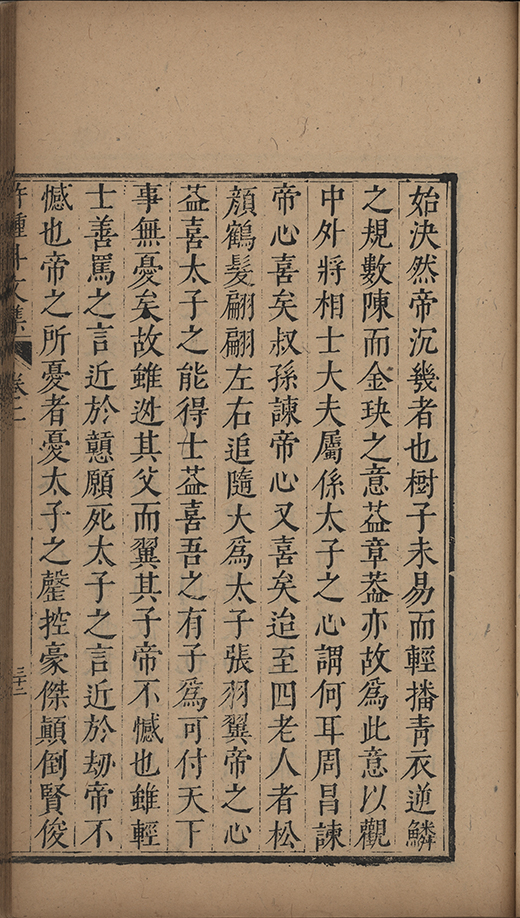 始決然帝沉幾者也樹子未易而輕播青衣逆鱗
之規數陳而金玦之意益章葢亦故為此意以觀
中外將相士大夫屬係太子之心謂何耳周昌諫
帝心喜矣叔孫諫帝心又喜矣迨至四老人者松
顏鶴髮翩翩左右追隨大為太子張羽翼帝之心
葢喜太子之能得士葢喜吾之有子為可付天下
事無憂矣故雖逃其父而翼其子帝不憾也雖輕
士善罵之言近於戇願死太子之言近於刼帝不
憾也帝之所憂者憂太子之罄控豪傑顛倒賢俊
許鍾斗文集 卷之二 三十二